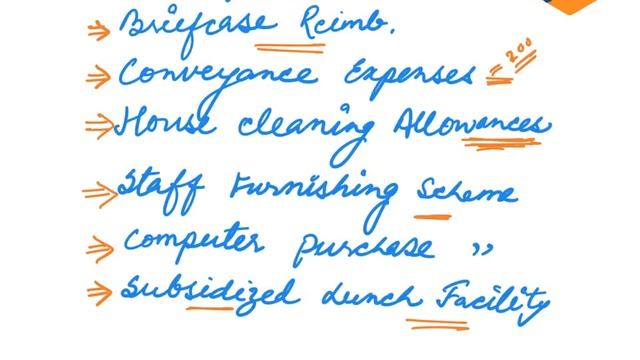 ⇒ Briefcase Reimb.
⇒ Conveyance Expenses = 200
⇒ House cleaning Allowances
⇒ Staff Furnishing Scheme
⇒ Computer purchase ,,
⇒ Subsidized Lunch Facility